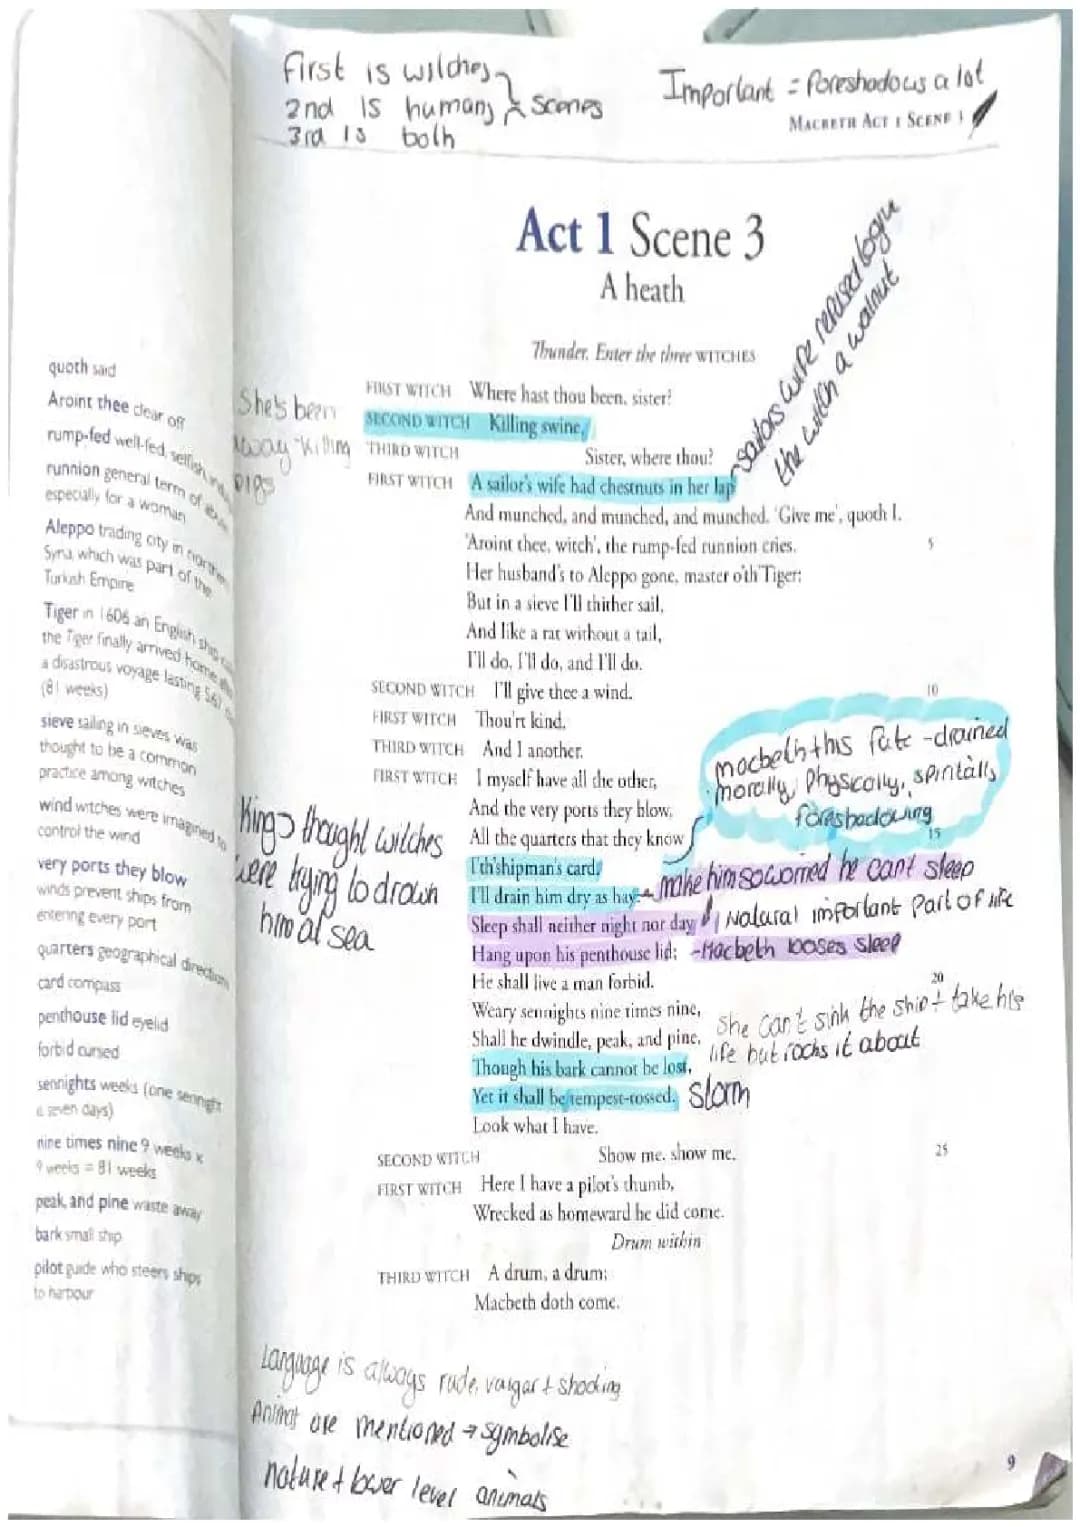 First is witches
2nd is humans } scenes
3rd is both
Important = foreshadows a lot
MACBETH ACT 1 SCENE 3
Act 1 Scene 3
A heath
sailors wife refused to give
the witch a walnut
Thunder. Enter the three WITCHES
FIRST WITCH Where hast thou been, sister?
SECOND WITCH Killing swine.
THIRD WITCH Sister, where thou?
FIRST WITCH A sailor's wife had chestnuts in her lap
And munched, and munched, and munched. 'Give me', quoth I.
'Aroint thee, witch', the rump-fed runnion cries. 5
Her husband's to Aleppo gone, master o'th'Tiger:
But in a sieve I'll thither sail,
And like a rat without a tail,
I'll do, I'll do, and I'll do.
SECOND WITCH I'll give thee a wind. 10
FIRST WITCH Thou'rt kind.
THIRD WITCH And I another.
FIRST WITCH I myself have all the other,
And the very ports they blow,
All the quarters that they know 15
I'th'shipman's card.
I'll drain him dry as hay:
Sleep shall neither night nor day
Hang upon his penthouse lid;
He shall live a man forbid. 20
Weary sennights nine times nine,
Shall he dwindle, peak, and pine.
Though his bark cannot be lost,
Yet it shall be tempest-tossed.
Look what I have.
SECOND WITCH Show me, show me. 25
FIRST WITCH Here I have a pilot's thumb,
Wrecked as homeward he did come.
Drum within
THIRD WITCH A drum, a drum;
Macbeth doth come.
She's been
away killing
pigs
King thought witches
were trying to drown
him at sea
macbeth this fate -drained
morally, Physcolly, spiritally
foreshadowing
make him so worried he can't sleep
Natural important part of life
-Macbeth looses sleep
She can't sink the ship + take his
life but rocks it about
Storm
Language is always rude, vulgar + shocking
Animal are mentioned → symbolise
nature + lower level animals
quoth said
Aroint thee clear off
rump-fed well-fed, selfish,
runnion general term of abuse
especially for a woman
Aleppo trading city in northern
Syria, which was part of the
Turkish Empire
Tiger in 1606 an English ship
the Tiger finally arrived home after
a disastrous voyage lasting 567
(81 weeks)
sieve sailing in sieves was
thought to be a common
practice among witches
wind witches were imagined to
control the wind
very ports they blow
winds prevent ships from
entering every port
quarters geographical directions
card compass
penthouse lid eyelid
forbid cursed
sennights weeks (one sennight
is seven days)
nine times nine 9 weeks x
9 weeks = 81 weeks
peak, and pine waste away
bark small ship
pilot guide who steers ships
to harbour
9